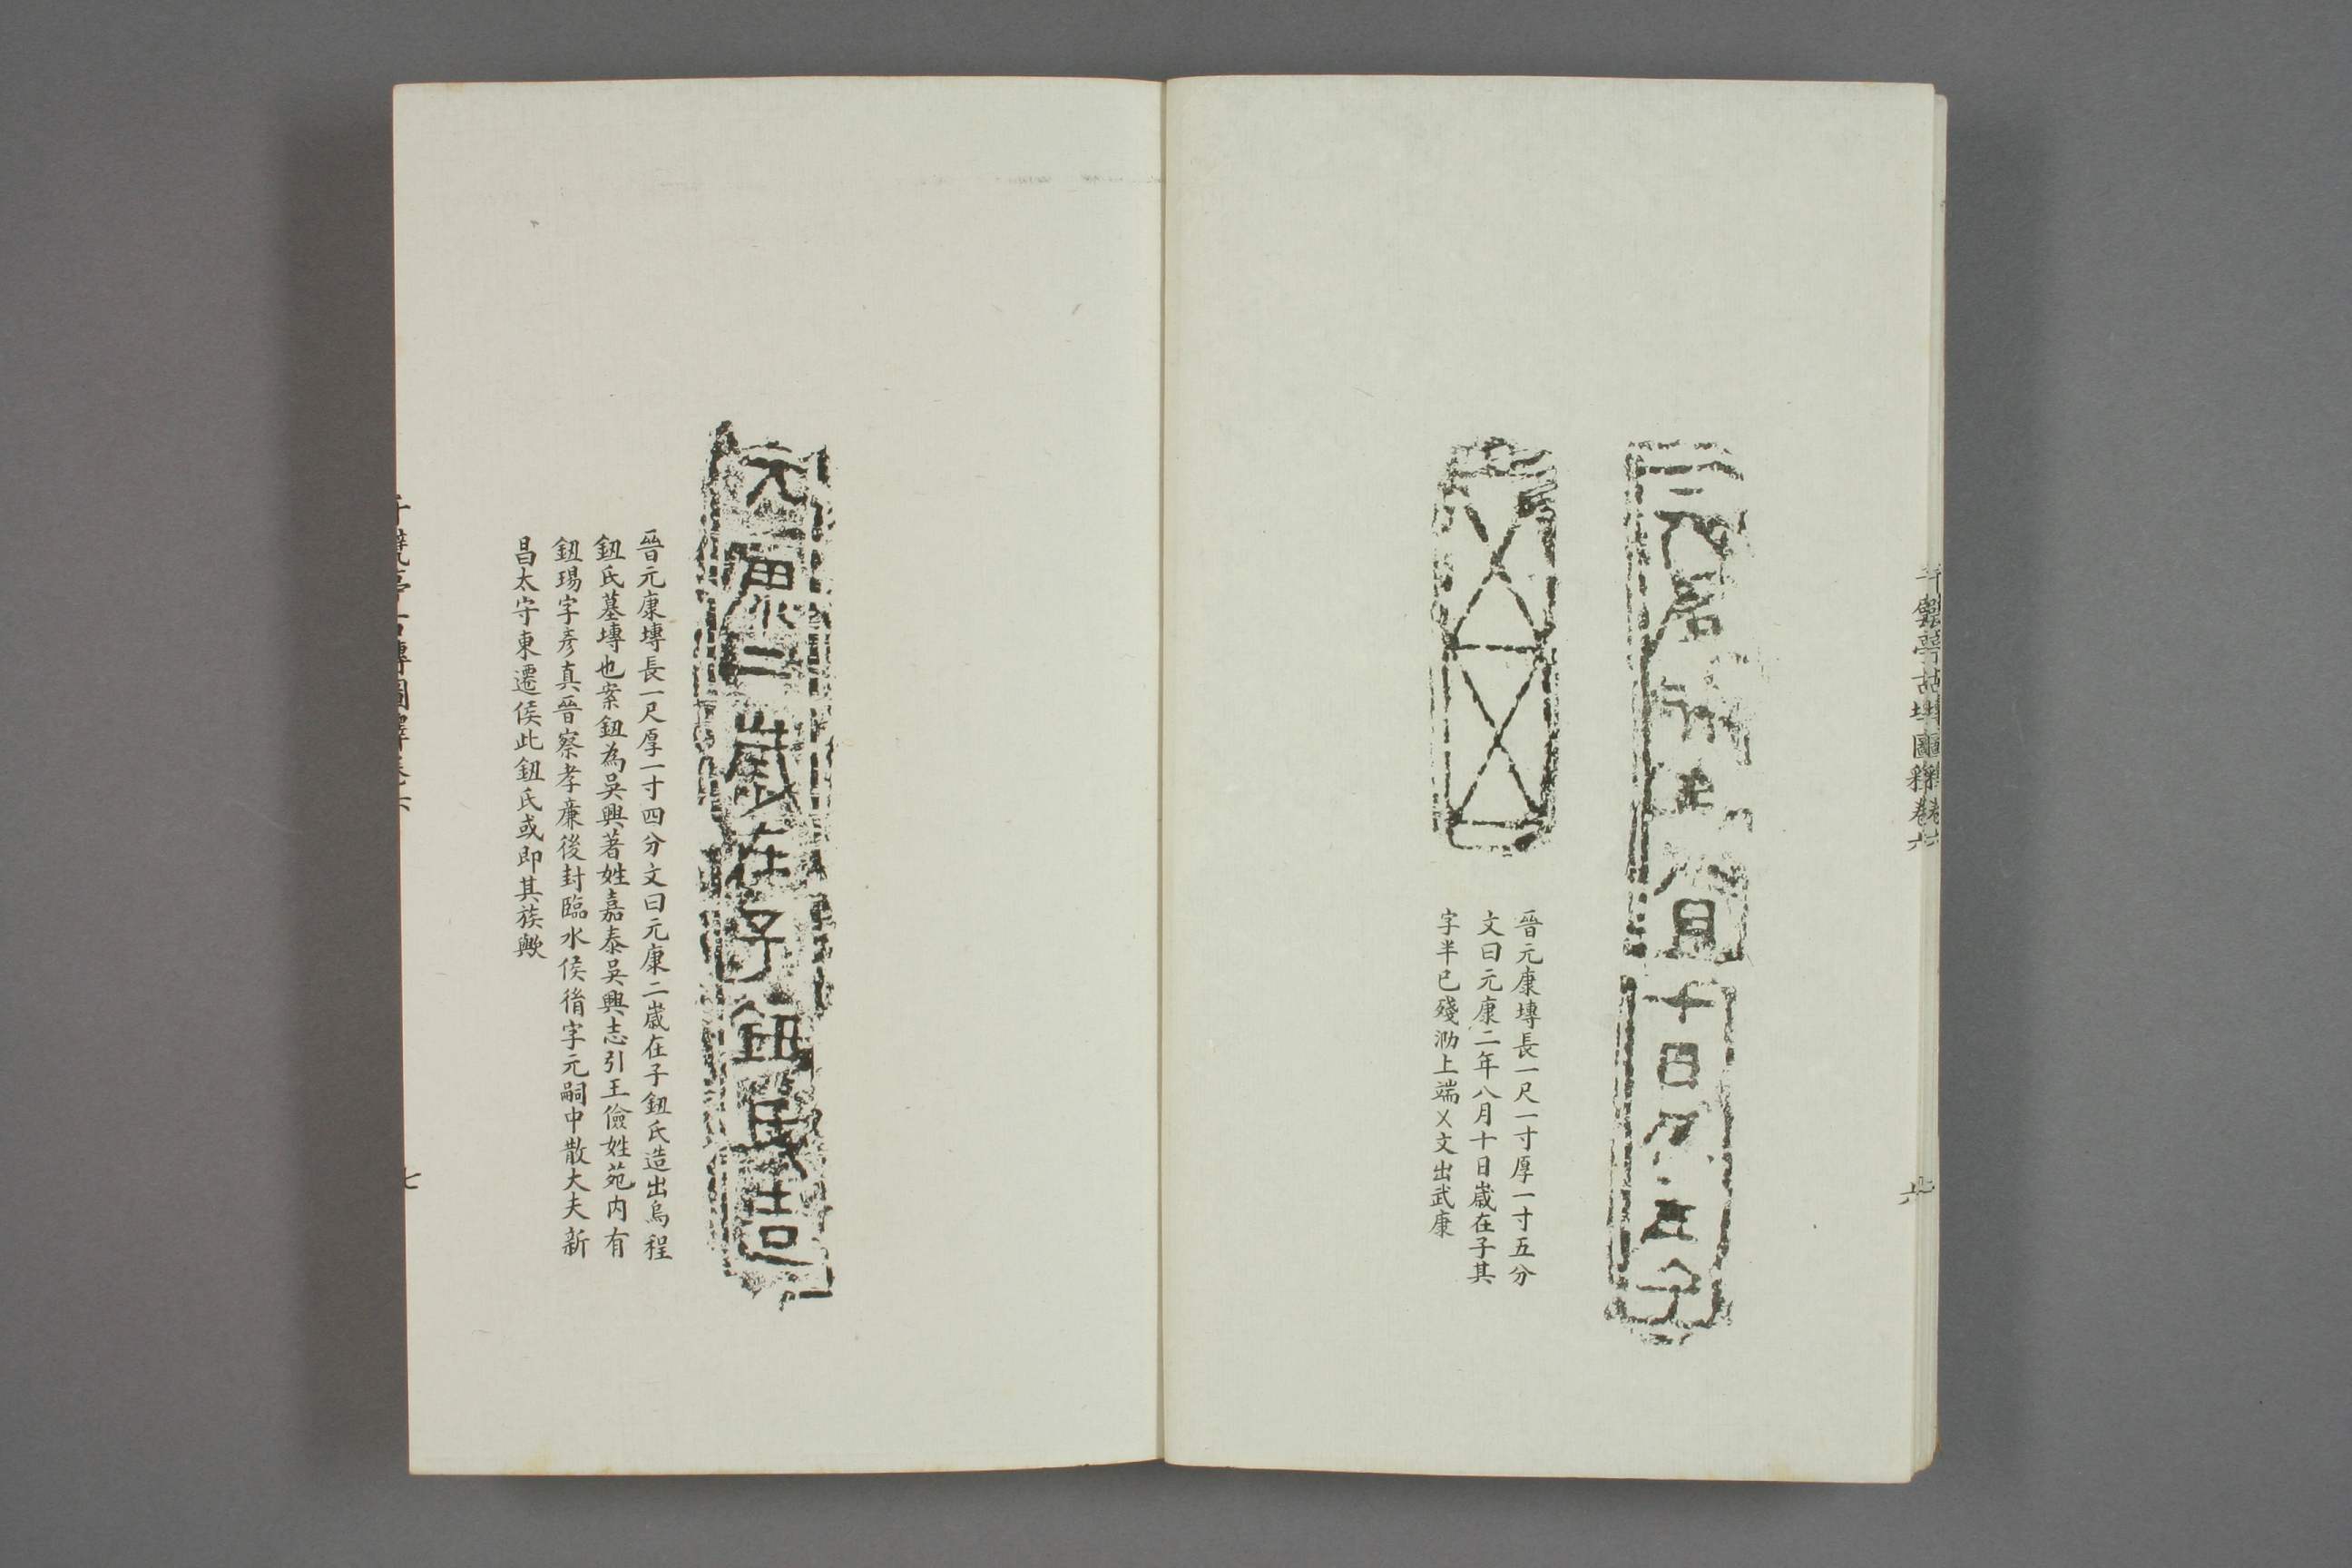 元康二年八月十日歲在子
晉元康塼長一尺一寸厚一寸五分
文曰元康二年八月十日歲在子其
字半已殘泐上端㐅文出武康
六
元康二歲在子鈕氏造
晉元康塼長一尺厚一寸四分文曰元康二歲在子鈕氏造出烏程
鈕氏墓塼也案鈕為吳興著姓嘉泰吳興志引王儉姓苑内有
鈕瑒字彥真晉察孝廉後封臨水侯脩字元嗣中散大夫新
昌太守東遷侯此鈕氏或即其族歟
千甓亭古塼圖釋卷六
七